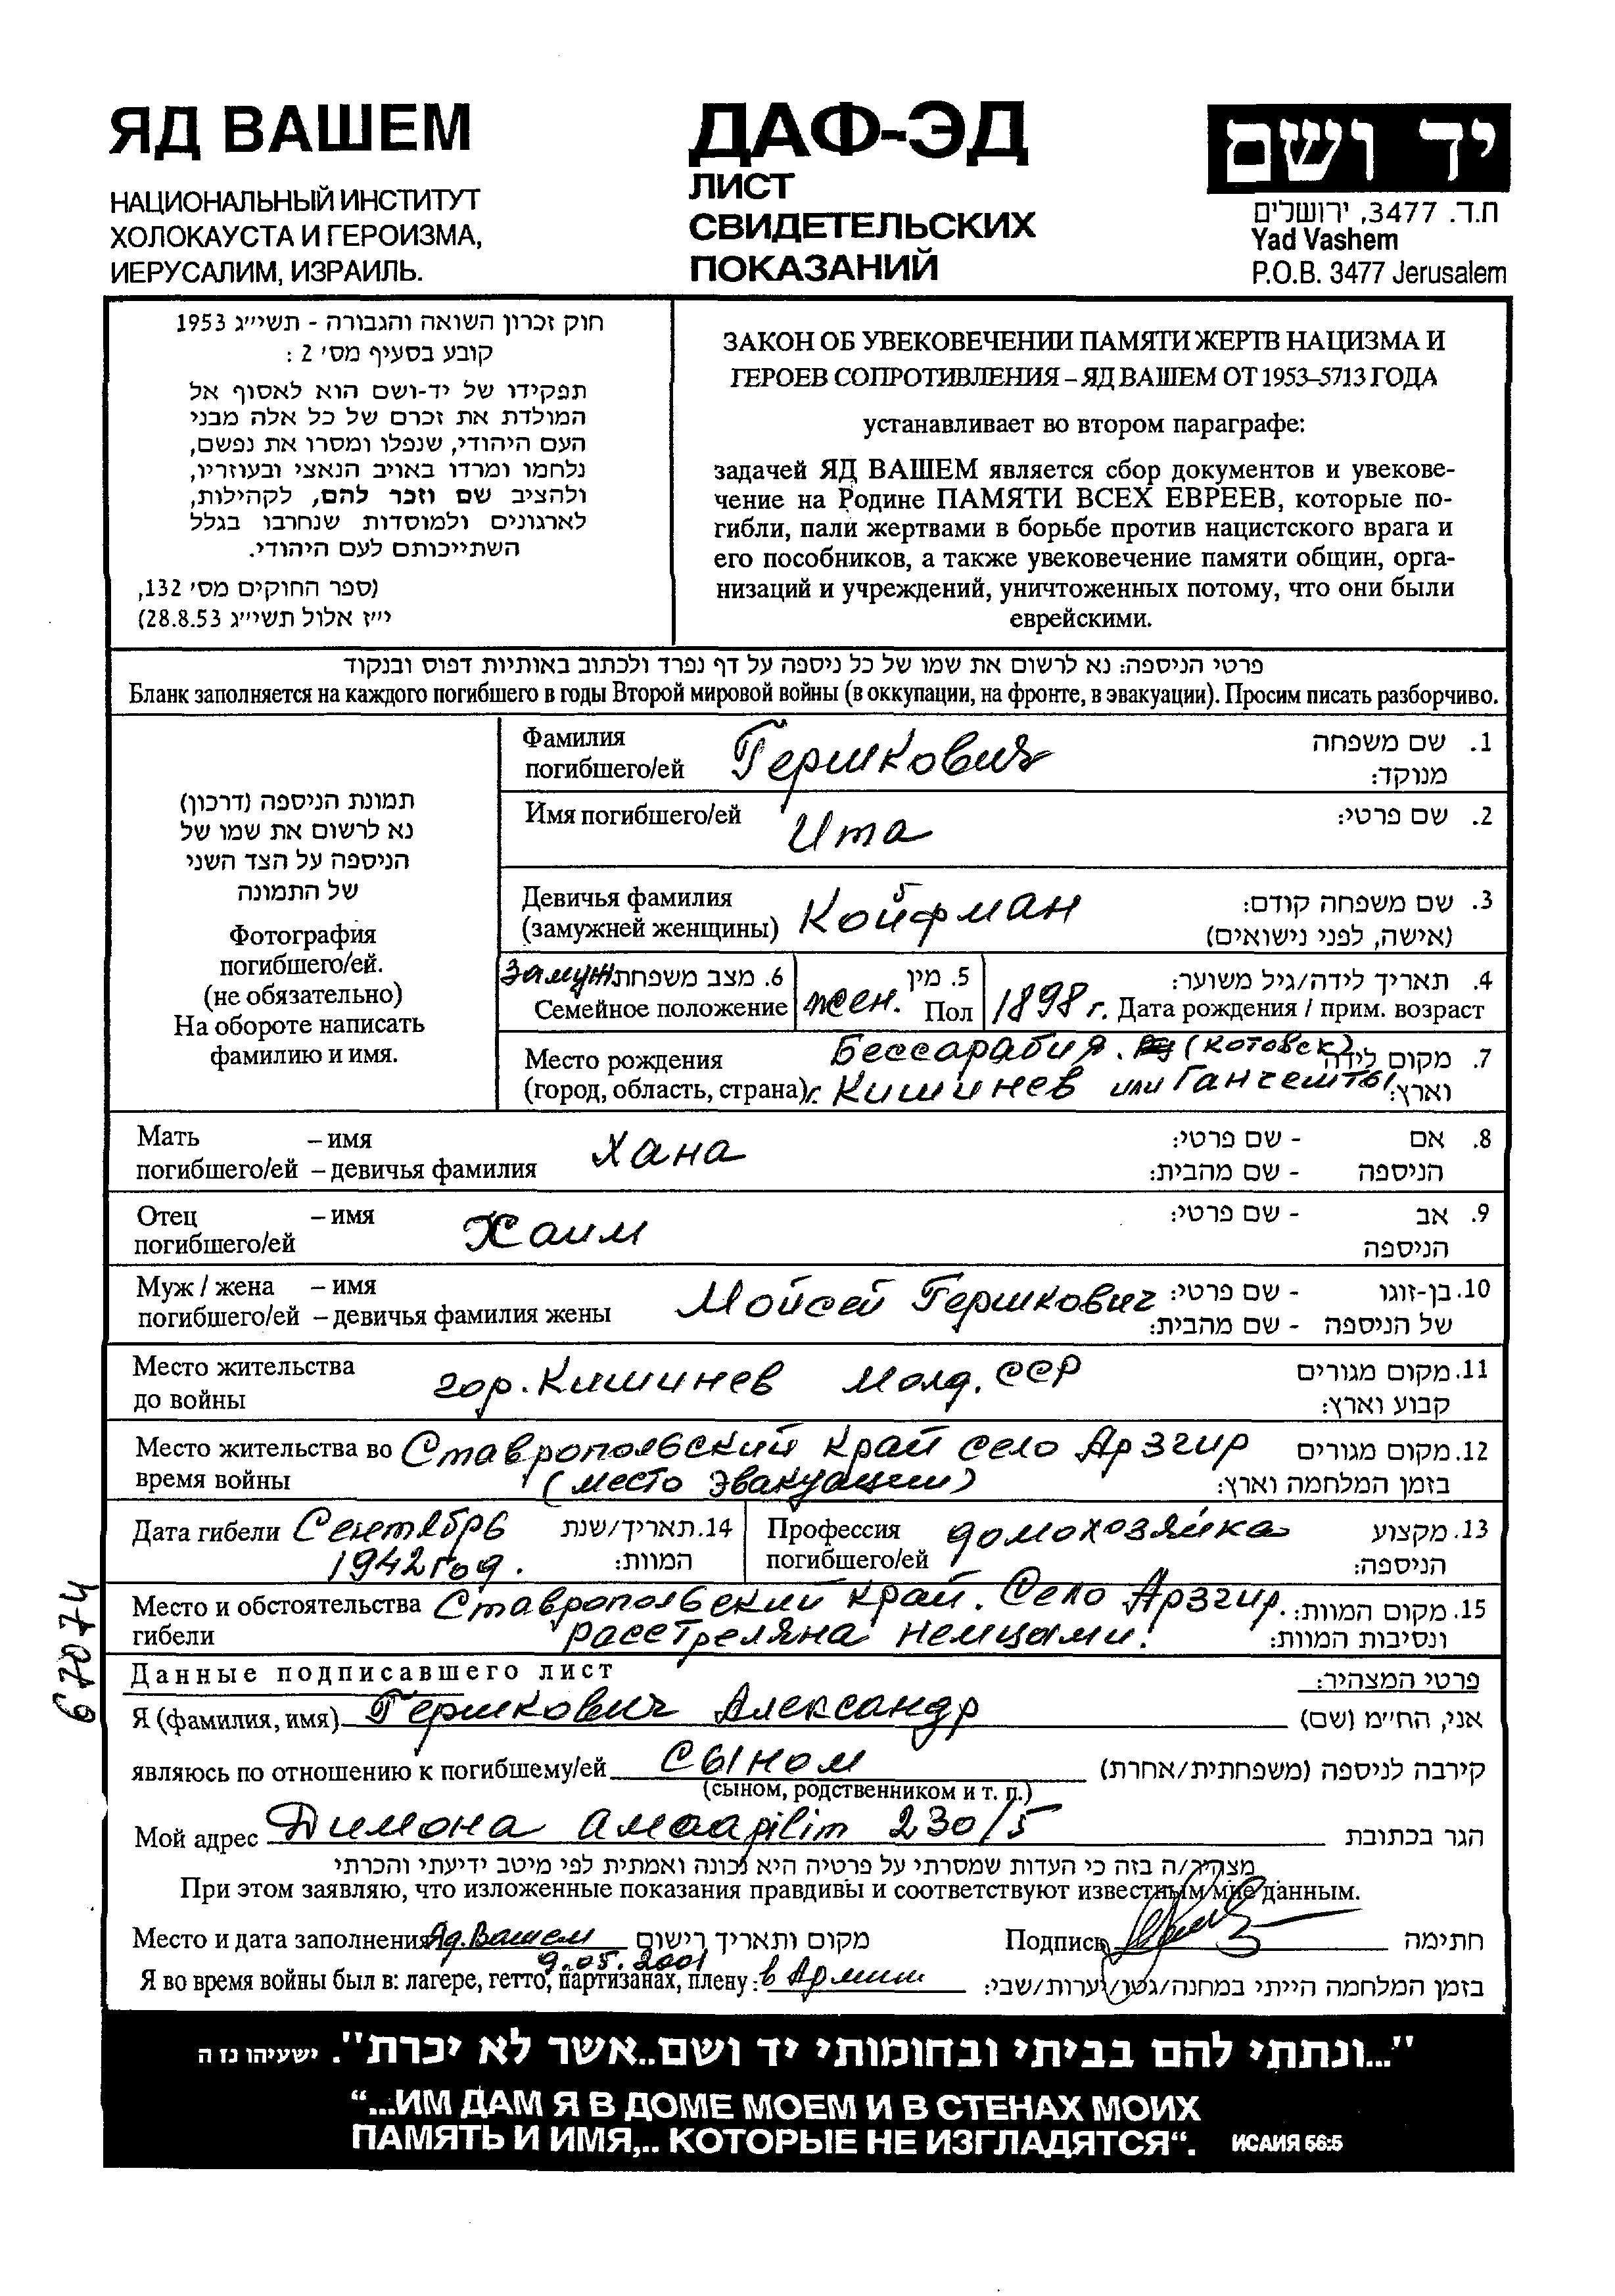 ЯД ВАШЕМ
НАЦИОНАЛЬНЫЙ ИНСТИТУТ
ХОЛОКАУСТА И ГЕРОИЗМА,
ИЕРУСАЛИМ, ИЗРАИЛЬ.
ДАФ-ЭД
ЛИСТ
СВИДЕТЕЛЬСКИХ
ПОКАЗАНИЙ
יד ושם
ת.ד. 3477, ירושלים
Yad Vashem
P.O.B. 3477 Jerusalem
חוק זכרון השואה והגבורה - תשי״ג 1953
קובע בסעיף מס׳ 2 :
תפקידו של יד-ושם הוא לאסוף אל
המולדת את זכרם של כל אלה מבני
העם היהודי, שנפלו ומסרו את נפשם,
נלחמו ומרדו באויב הנאצי ובעוזריו,
ולהציב שם וזכר להם, לקהילות,
לארגונים ולמוסדות שנחרבו בגלל
השתייכותם לעם היהודי.
(ספר החוקים מס׳ 132,
י״ז אלול תשי״ג 28.8.53)
ЗАКОН ОБ УВЕКОВЕЧЕНИИ ПАМЯТИ ЖЕРТВ НАЦИЗМА И
ГЕРОЕВ СОПРОТИВЛЕНИЯ – ЯД ВАШЕМ ОТ 1953–5713 ГОДА
устанавливает во втором параграфе:
задачей ЯД ВАШЕМ является сбор документов и увекове-
чение на Родине ПАМЯТИ ВСЕХ ЕВРЕЕВ, которые по-
гибли, пали жертвами в борьбе против нацистского врага и
его пособников, а также увековечение памяти общин, орга-
низаций и учреждений, уничтоженных потому, что они были
еврейскими.
פרטי הניספה: נא לרשום את שמו של כל ניספה על דף נפרד ולכתוב באותיות דפוס ובנקוד
Бланк заполняется на каждого погибшего в годы Второй мировой войны (в оккупации, на фронте, в эвакуации). Просим писать разборчиво.
תמונת הניספה (דרכון)
נא לרשום את שמו של
הניספה על הצד השני
של התמונה
Фотография
погибшего/ей.
(не обязательно)
На обороте написать
фамилию и имя.
Фамилия Гершкович 1. שם משפחה
погибшего/ей מנוקד:
Имя погибшего/ей Ита 2. שם פרטי:
Девичья фамилия Койфман 3. שם משפחה קודם:
(замужней женщины) (אישה, לפני נישואים)
замуж 6. מצב משפחתי 5. מין 4. תאריך לידה/גיל משוער:
Семейное положение жен. Пол 1898 г. Дата рождения / прим. возраст
Место рождения Бессарабия. (Котовск) 7. מקום לידה
(город, область, страна) г. Кишинев или Ганчешты וארץ:
Мать – имя Хана 8. אם - שם פרטי:
погибшего/ей – девичья фамилия הניספה - שם מהבית:
Отец – имя Хаим 9. אב - שם פרטי:
погибшего/ей הניספה
Муж / жена – имя Мойсей Гершкович 10. בן-זוגו - שם פרטי:
погибшего/ей – девичья фамилия жены של הניספה - שם מהבית:
Место жительства гор. Кишинев Молд. ССР 11. מקום מגורים
до войны קבוע וארץ:
Место жительства во Ставропольский край село Арзгир 12. מקום מגורים
время войны (место эвакуации) בזמן המלחמה וארץ:
Дата гибели Сентябрь 14. תאריך/שנת Профессия домохозяйка 13. מקצוע
1942 год. המוות: погибшего/ей הניספה:
Место и обстоятельства Ставропольский край. Село Арзгир. 15. מקום המוות:
гибели расстреляна немцами. ונסיבות המוות:
67074
Данные подписавшего лист פרטי המצהיר:
Я (фамилия, имя) Гершкович Александр אני, הח״מ (שם)
являюсь по отношению к погибшему/ей сыном קירבה לניספה (משפחתית/אחרת)
(сыном, родственником и т. п.)
Мой адрес Димона amaapilim 230/5 הגר בכתובת
מצהיר/ה בזה כי העדות שמסרתי על פרטיה היא נכונה ואמתית לפי מיטב ידיעתי והכרתי
При этом заявляю, что изложенные показания правдивы и соответствуют известным мне данным.
Место и дата заполнения Яд. Вашем מקום ותאריך רישום Подпись חתימה
9.05.2001
Я во время войны был в: лагере, гетто, партизанах, плену: в Армии בזמן המלחמה הייתי במחנה/גטו/יערות/שבי:
"...ונתתי להם בביתי ובחומותי יד ושם..אשר לא יכרת". ישעיהו נז ה
“...ИМ ДАМ Я В ДОМЕ МОЕМ И В СТЕНАХ МОИХ
ПАМЯТЬ И ИМЯ,.. КОТОРЫЕ НЕ ИЗГЛАДЯТСЯ“. ИСАИЯ 56:5